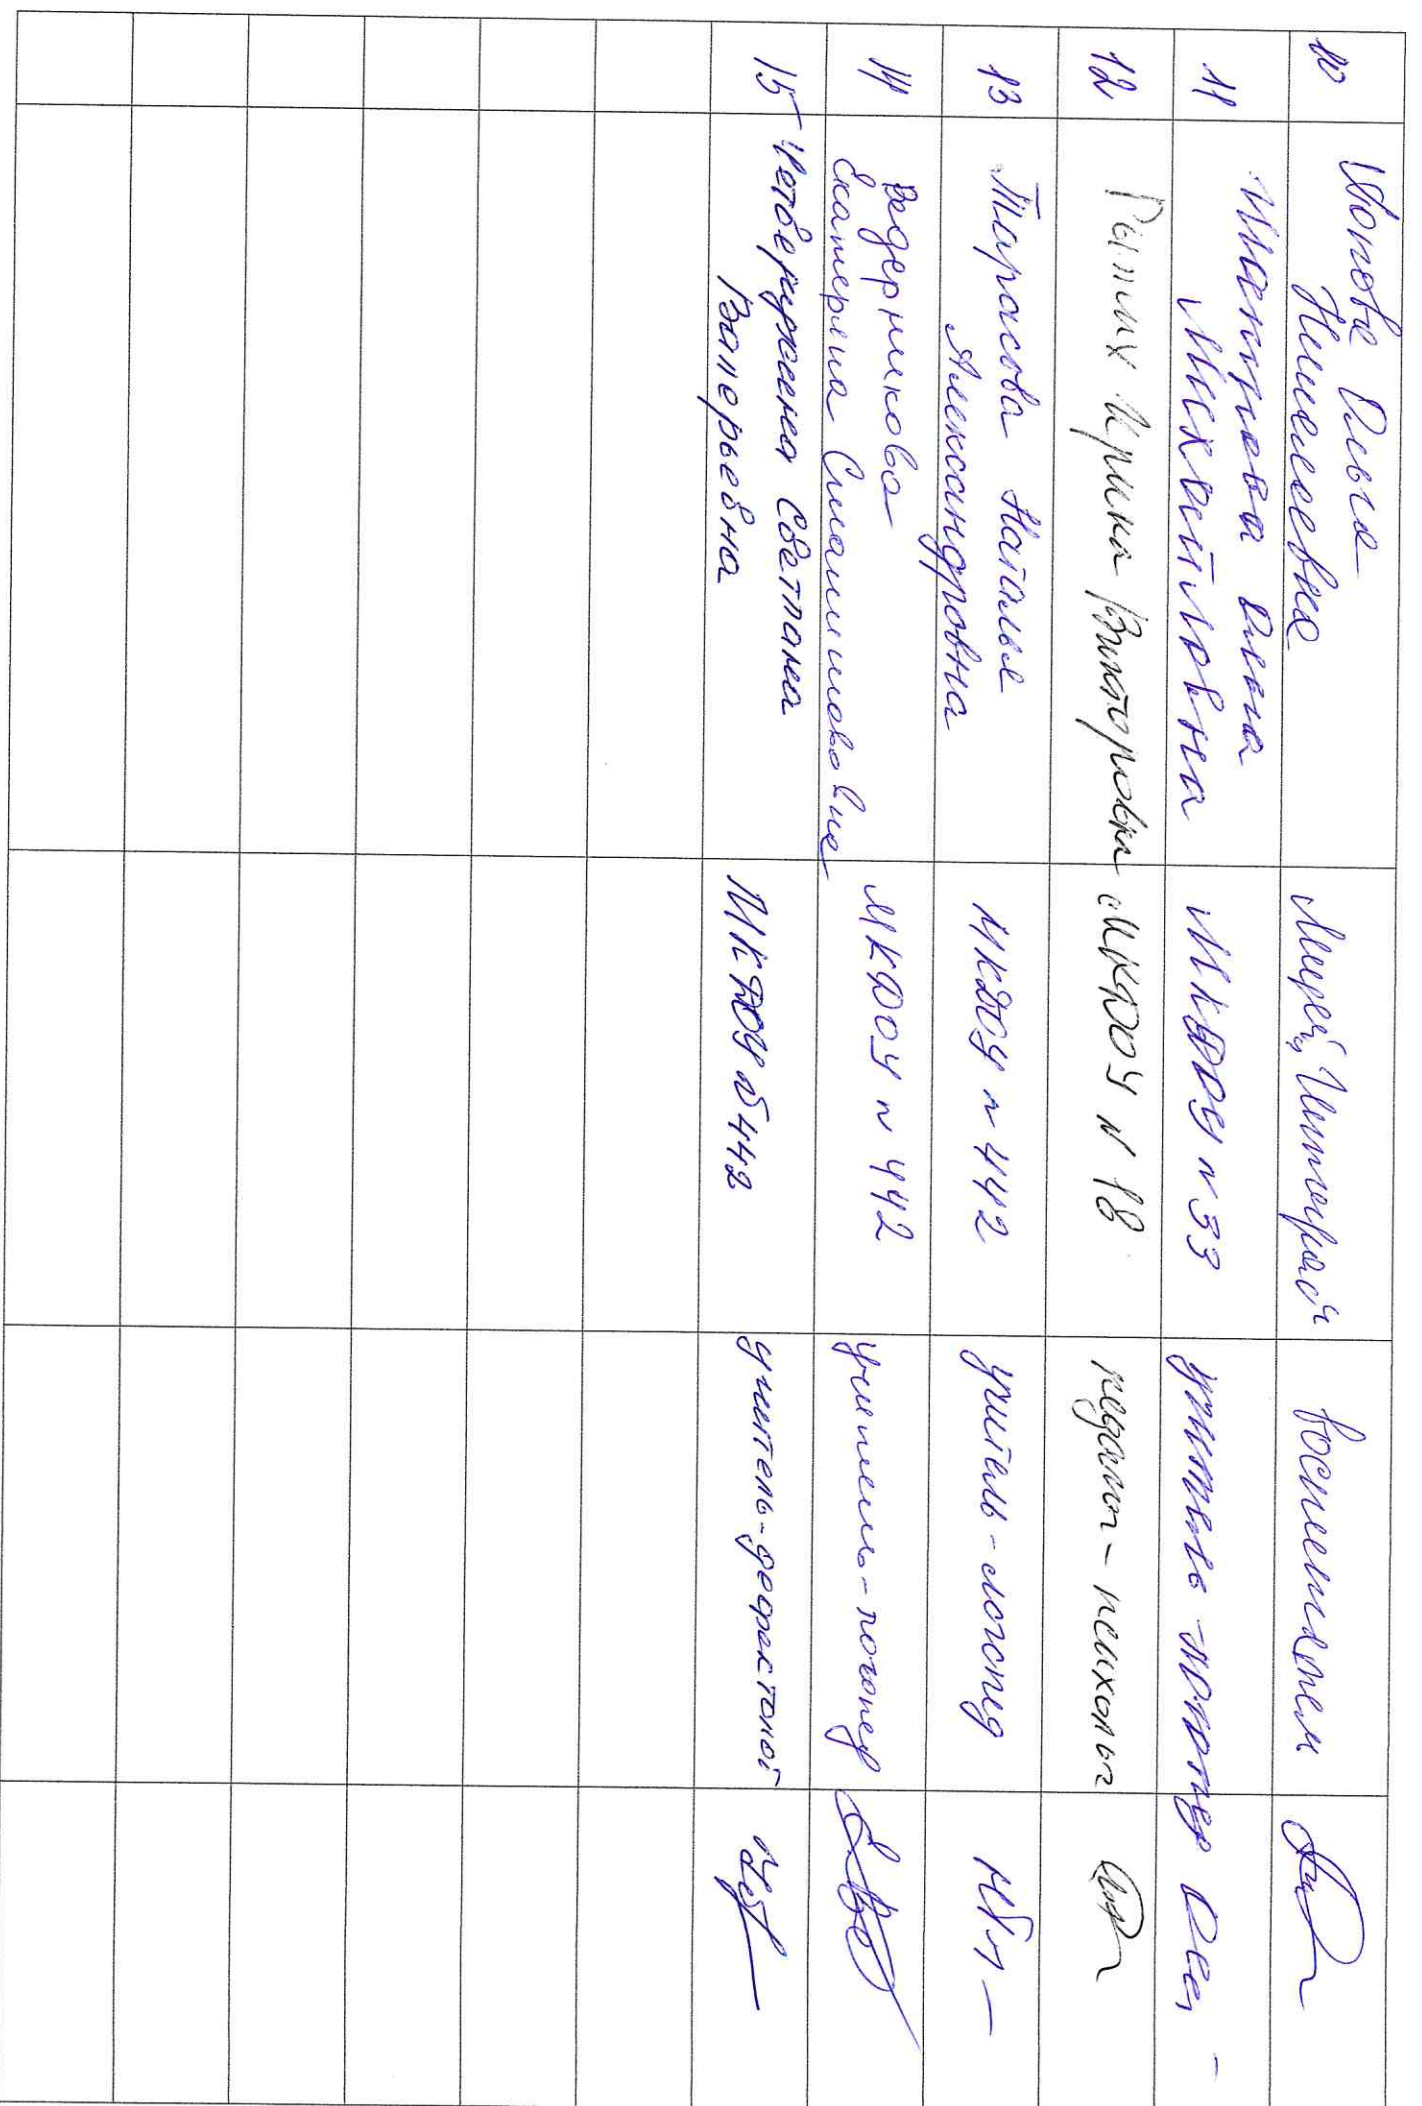 10
Ольга
Николаевна
Лицей Интеграл
воспитатель
11
Ольга
Михайловна
МКДОУ № 33
учитель-логопед
12 Рыжих Ирина Викторовна МКДОУ № 18 педагог-психолог
13
Тарасова Наталья
Александровна
МКДОУ № 442
учитель-логопед
14
Ведерникова
Екатерина
МКДОУ № 442
учитель-логопед
15
Светлана
Валерьевна
МКДОУ № 442
учитель-дефектолог